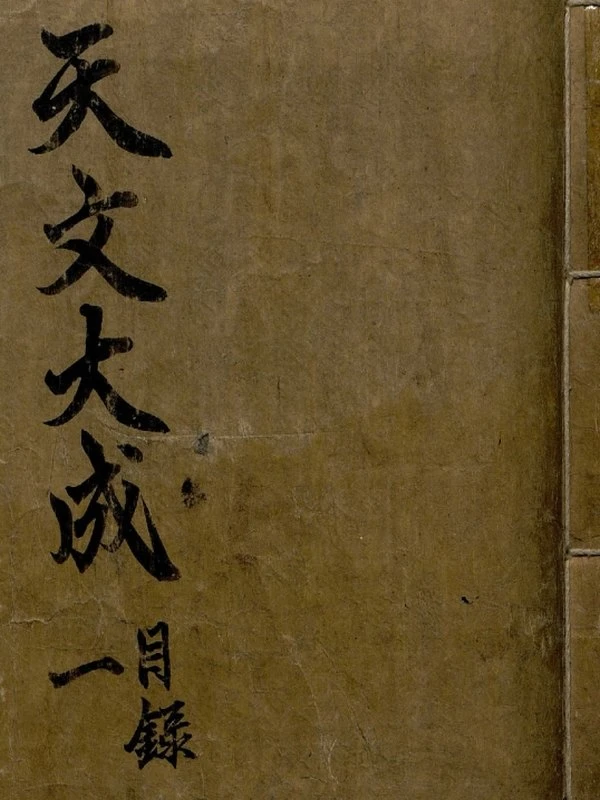 天文大成
目錄
一